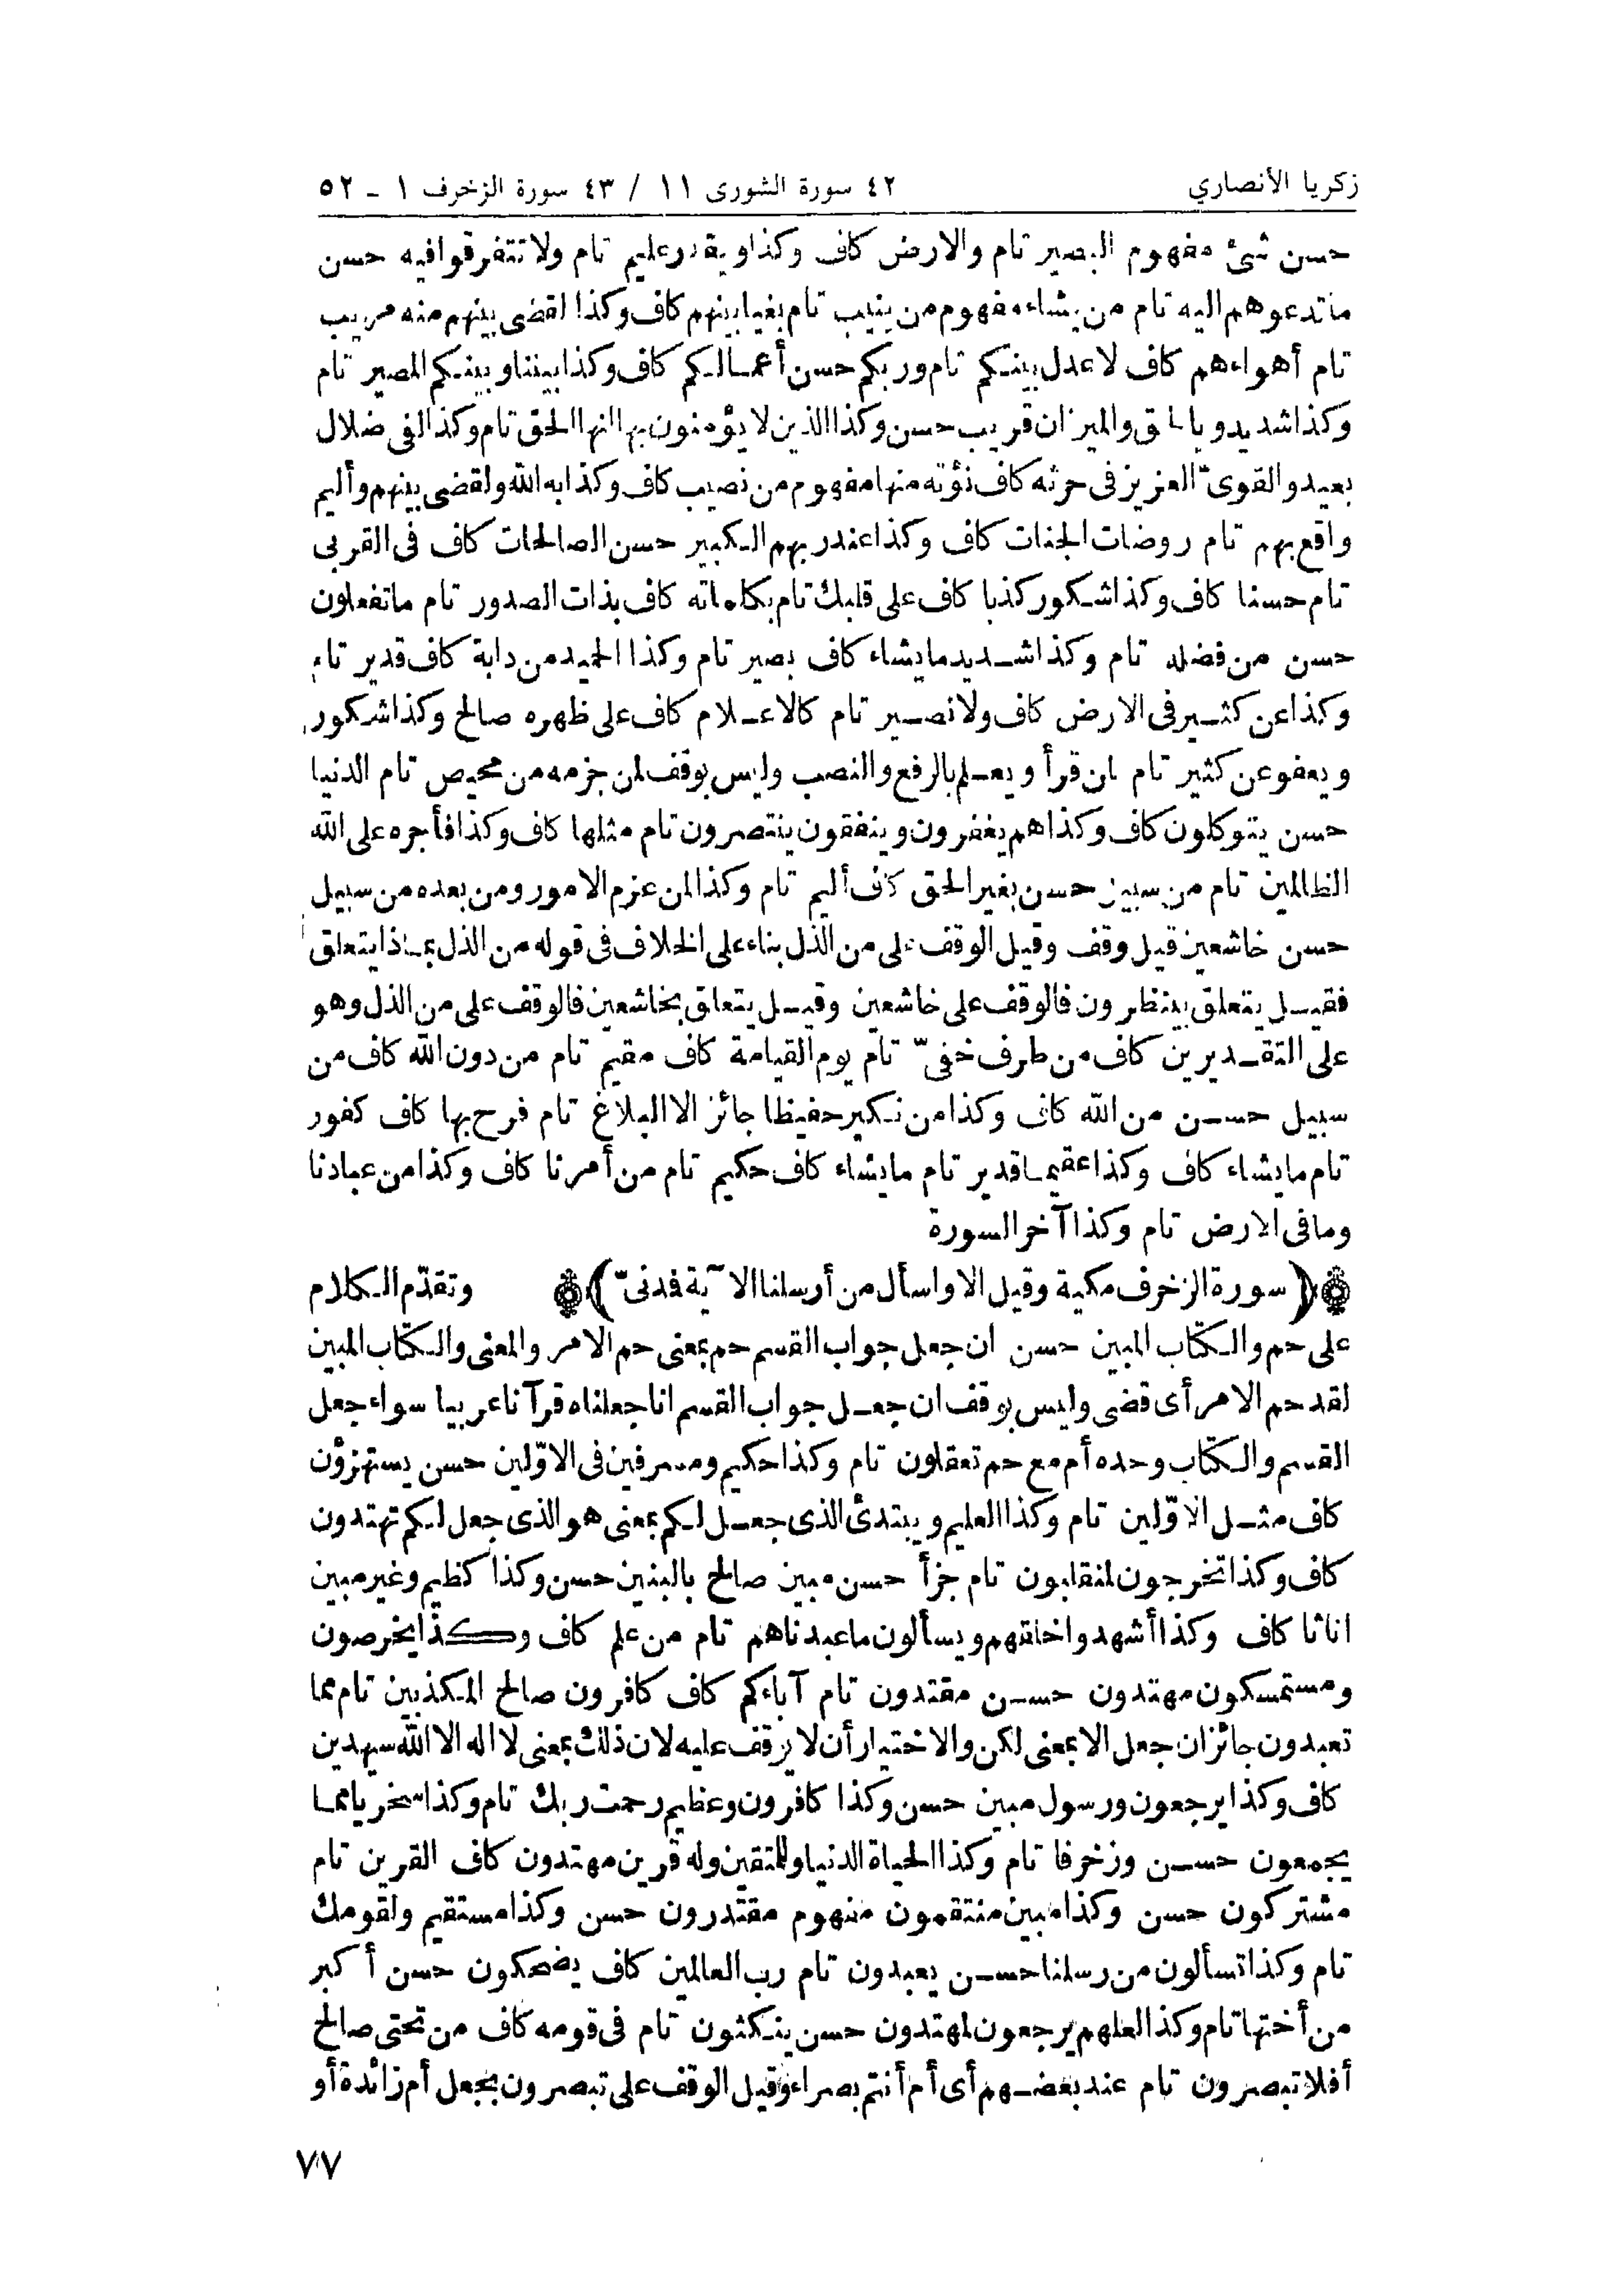 زكريا الأنصاري
٤٢ سورة الشورى ١١ / ٤٣ سورة الزخرف ١ ـ ٥٢
حسن شئ مفهوم البصير تام والارض كاف وكذا ويقدر عليم تام ولا تتفرقوا فيه حسن
ما تدعوهم اليه تام من يشاء مفهوم من ينيب تام بغيا بينهم كاف وكذا لقضى بينهم منه مريب
تام أهواءهم كاف لا عدل بينكم تام وربكم حسن أعمالكم كاف وكذا بيننا وبينكم المصير تام
وكذا شديد وبالحق والميزان قريب حسن وكذا الذين لا يؤمنون بها انها الحق تام وكذا لفى ضلال
بعيد والقوىّ العزيز فى حرثه كاف نؤته منها مفهوم من نصيب كاف وكذا به الله ولقضى بينهم وأليم
واقع بهم تام روضات الجنات كاف وكذا عند ربهم الكبير حسن الصالحات كاف فى القربى
تام حسنا كاف وكذا شكور كذبا كاف على قلبك تام بكلماته كاف بذات الصدور تام ما تفعلون
حسن من فضله تام وكذا شديد ما يشاء كاف بصير تام وكذا الحميد من دابة كاف قدير تام
وكذا عن كثير فى الارض كاف ولا نصير تام كالاعلام كاف على ظهره صالح وكذا شكور
ويعفو عن كثير تام لمن قرأ ويعلم بالرفع والنصب وليس بوقف لمن جزمه من محيص تام الدنيا
حسن يتوكلون كاف وكذا هم يغفرون وينفقون ينتصرون تام مثلها كاف وكذا فأجره على الله
الظالمين تام من سبيل حسن بغير الحق كاف أليم تام وكذا لمن عزم الامور ومن بعده من سبيل
حسن خاشعين قيل وقف وقيل الوقف على من الذل بناء على الخلاف فى قوله من الذل بماذا يتعلق
فقيل يتعلق بينظرون فالوقف على خاشعين وقيل يتعلق بخاشعين فالوقف على من الذل وهو
على التقديرين كاف من طرف خفىّ تام يوم القيامة كاف مقيم تام من دون الله كاف من
سبيل حسن من الله كاف وكذا من نكير حفيظا جائز الا البلاغ تام فرح بها كاف كفور
تام ما يشاء كاف وكذا عقيما قدير تام ما يشاء كاف حكيم تام من أمرنا كاف وكذا من عبادنا
وما فى الارض تام وكذا آخر السورة
(سورة الزخرف مكية وقيل الا واسأل من أرسلنا الآية فمدنىّ) وتقدّم الكلام
على حم والكتاب المبين حسن ان جعل جواب القسم حم بمعنى حم الامر والمعنى والكتاب المبين
لقد حم الامر أى قضى وليس بوقف ان جعل جواب القسم انا جعلناه قرآنا عربيا سواء جعل
القسم والكتاب وحده أم مع حم تعقلون تام وكذا حكيم ومسرفين فى الاوّلين حسن يستهزؤن
كاف مثل الاوّلين تام وكذا العليم ويبتدئ الذى جعل لكم بمعنى هو الذى جعل لكم تهتدون
كاف وكذا تخرجون لمنقلبون تام جزأ حسن مبين صالح بالبنين حسن وكذا كظيم وغير مبين
اناثا كاف وكذا أشهدوا خلقهم ويسألون ما عبدناهم تام من علم كاف وكذا يخرصون
ومستمسكون مهتدون حسن مقتدون تام آباءكم كاف كافرون صالح المكذبين تام مما
تعبدون جائز ان جعل الا بمعنى لكن والاختيار أن لا يوقف عليه لان ذلك بمعنى لا اله الا الله سيهدين
كاف وكذا يرجعون ورسول مبين حسن وكذا كافرون وعظيم رحمت ربك تام وكذا سخريا مما
يجمعون حسن وزخرفا تام وكذا الحياة الدنيا وللمتقين وله قرين مهتدون كاف القرين تام
مشتركون حسن وكذا مبين منتقمون مفهوم مقتدرون حسن وكذا مستقيم ولقومك
تام وكذا تسألون من رسلنا حسن يعبدون تام رب العالمين كاف يضحكون حسن أكبر
من أختها تام وكذا لعلهم يرجعون لمهتدون حسن ينكثون تام فى قومه كاف من تحتى صالح
أفلا تبصرون تام عند بعضهم أى أم أنتم بصراء وقيل الوقف على تبصرون بجعل أم زائدة أو
٧٧